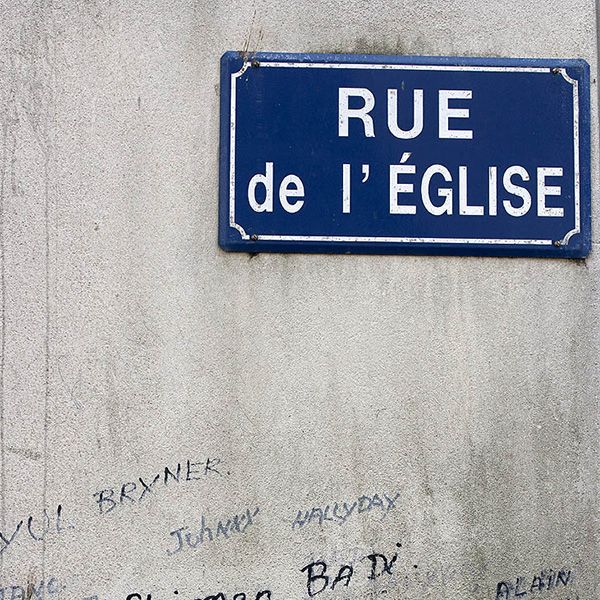 RUE
de l'ÉGLISE
YUL BRYNER.
JOHNNY HALLYDAY
BADi.
ALAIN